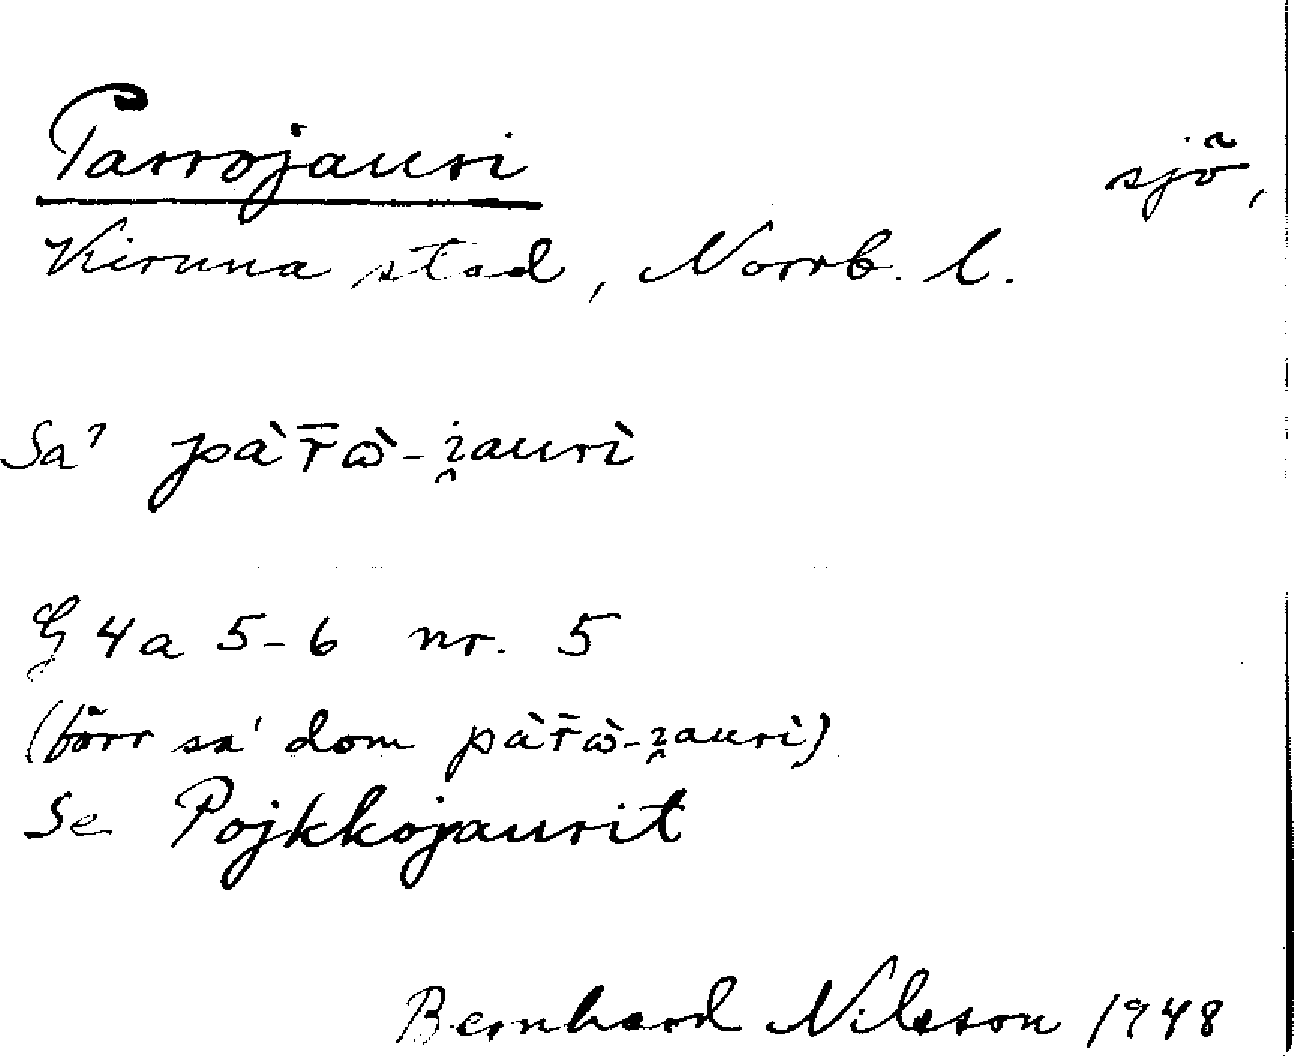 Parrojauri sjö,
Kiruna stad, Norrb. l.
Sa' pàr̄ɷ̀-i̯aurì
G 4a 5-6 nr. 5
(förr sa' dom pàr̄ɷ̀-i̯aurì)
Se Pojkkojaurit
Bernhard Nilsson 1948